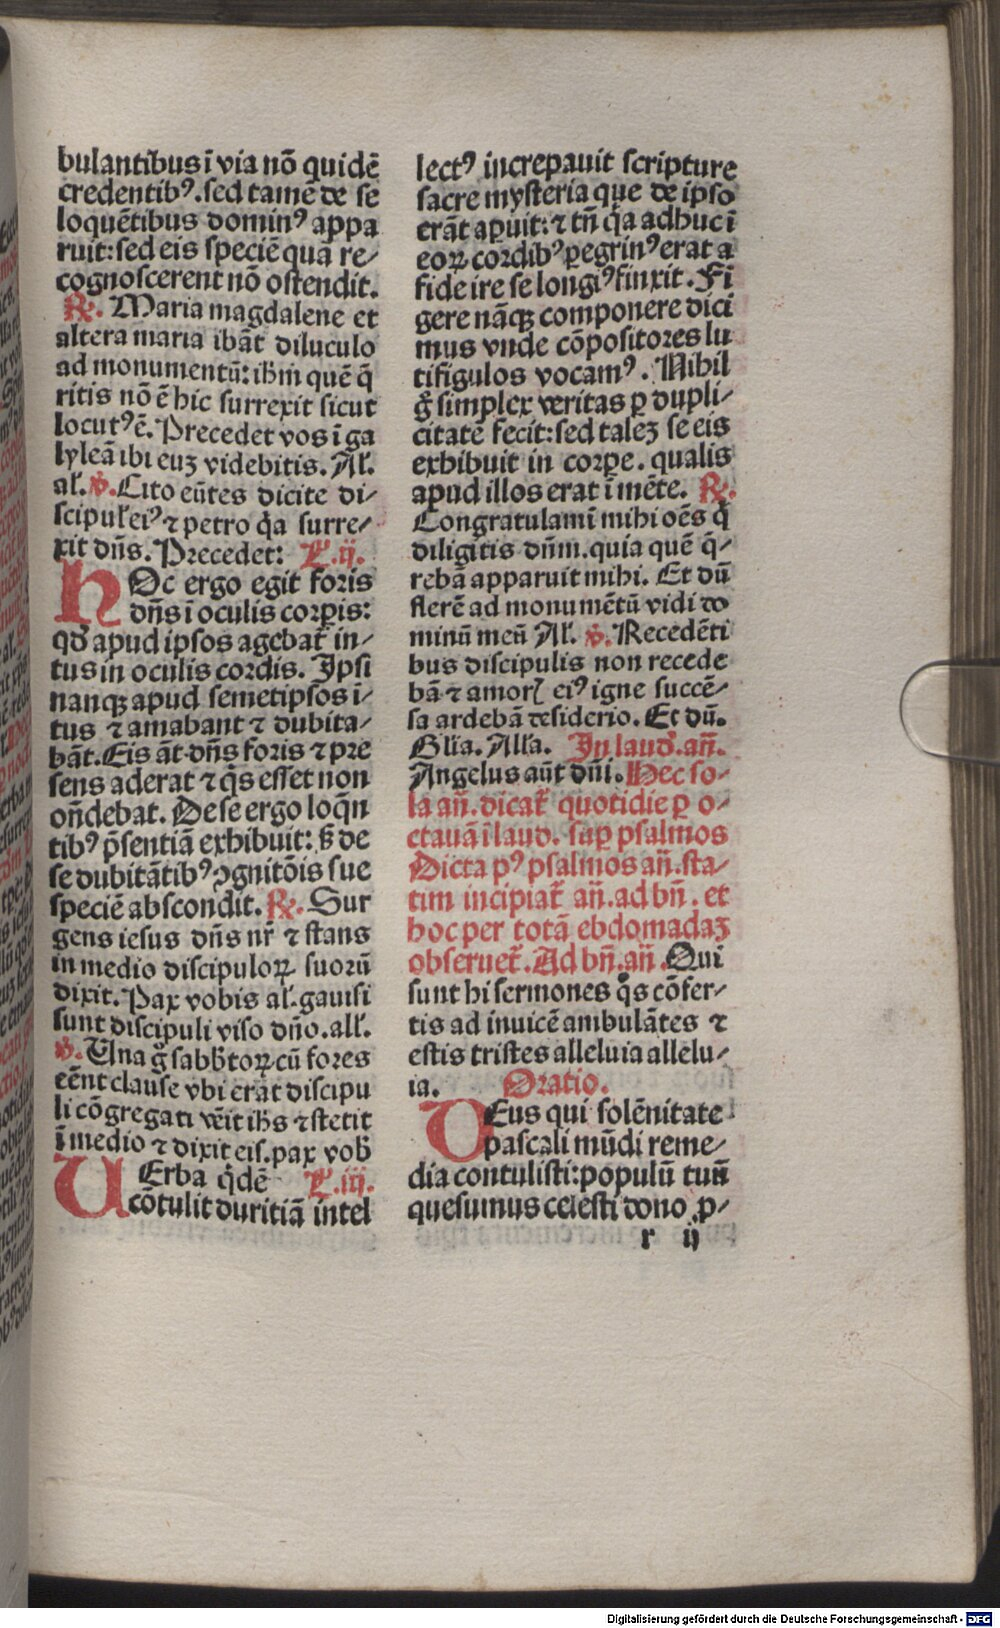 bulantibus ī via nō quidē
credentibꝰ. sed tamē de se
loquētibus dominꝰ appa
ruit: sed eis speciē quā re⸗
cognoscerent nō ostendit.
℟. Maria magdalene et
altera maria ibāt diluculo
ad monumentū: ihm̄ quē q̄
ritis nō ē hic surrexit sicut
locutꝰ ē. Precedet vos ī ga
lyleā ibi euꝫ videbitis. Al̄.
al̄. ℣. Cito eūtes dicite di⸗
scipul̄ eiꝰ ⁊ petro q̄a surre⸗
xit dn̄s. Precedet: L̄. ij.
HOc ergo egit foris
dn̄s ī oculis corꝑis:
qd̄ apud ipsos agebat̄ in⸗
tus in oculis cordis. Ipsi
nanqꝫ apud semetipsos ī⸗
tus ⁊ amabant ⁊ dubita⸗
bāt. Eis āt dn̄s foris ⁊ pre
sens aderat ⁊ q̄s esset non
on̄debat. De se ergo loq̄n
tibꝰ p̄sentiā exhibuit: s̄ de
se dubitātibꝰ ꝯgnitōis sue
speciē abscondit. ℟. Sur
gens iesus dn̄s nr̄ ⁊ stans
in medio discipuloꝝ suorū
dixit. Pax vobis al̄. gauisi
sunt discipuli viso dn̄o. all̄.
℣. Una g̊ sabb̄toꝝ cū fores
eēnt clause vbi erāt discipu
li cōgregati vēit ih̄s ⁊ stetit
ī medio ⁊ dixit eis. pax vob̄
UErba q̄dē L̄. iij.
cōtulit duritiā intel
lectꝰ increpauit scripture
sacre mysteria que de ipso
erāt aꝑuit: ⁊ tn̄ q̄a adhuc ī
eoꝝ cordibꝰ ꝑegrinꝰ erat a
fide ire se longiꝰ finxit. Fī
gere nāqꝫ componere dici
mus vnde cōpositores lu
ti figulos vocamꝰ. Nihil
g̊ simplex veritas ꝑ dupli⸗
citatē fecit: sed taleꝫ se eis
exhibuit in corꝑe. qualis
apud illos erat ī mēte. ℟.
Congratulamī mihi oēs q̄
diligitis dn̄m. quia quē q̄⸗
rebā apparuit mihi. Et dū
flerē ad monumētū vidi do
minū meū Al̄. ℣. Recedēti
bus discipulis non recede
bā ⁊ amorꝭ eiꝰ igne succē⸗
sa ardebā desiderio. Et dū.
Gl̄ia. All̄a. In laud̄. an̄.
Angelus aūt dn̄i. Hec so⸗
la an̄. dicat̄ quotidie ꝑ o⸗
ctauā ī laud̄. suꝑ psalmos
Dicta pꝰ psalmos an̄. sta⸗
tim incipiat̄ an̄. ad bn̄. et
hoc per totā ebdomadaꝫ
obseruet̄. Ad bn̄. an̄. Qui
sunt hi sermones q̊s cōfer⸗
tis ad inuicē ambulātes ⁊
estis tristes alleluia allelu⸗
ia. Oratio.
DEus qui solēnitate
pascali mūdi reme⸗
dia contulisti: populū tuū
quesumus celesti dono ꝓ⸗
r ij
Digitalisierung gefördert durch die Deutsche Forschungsgemeinschaft - DFG